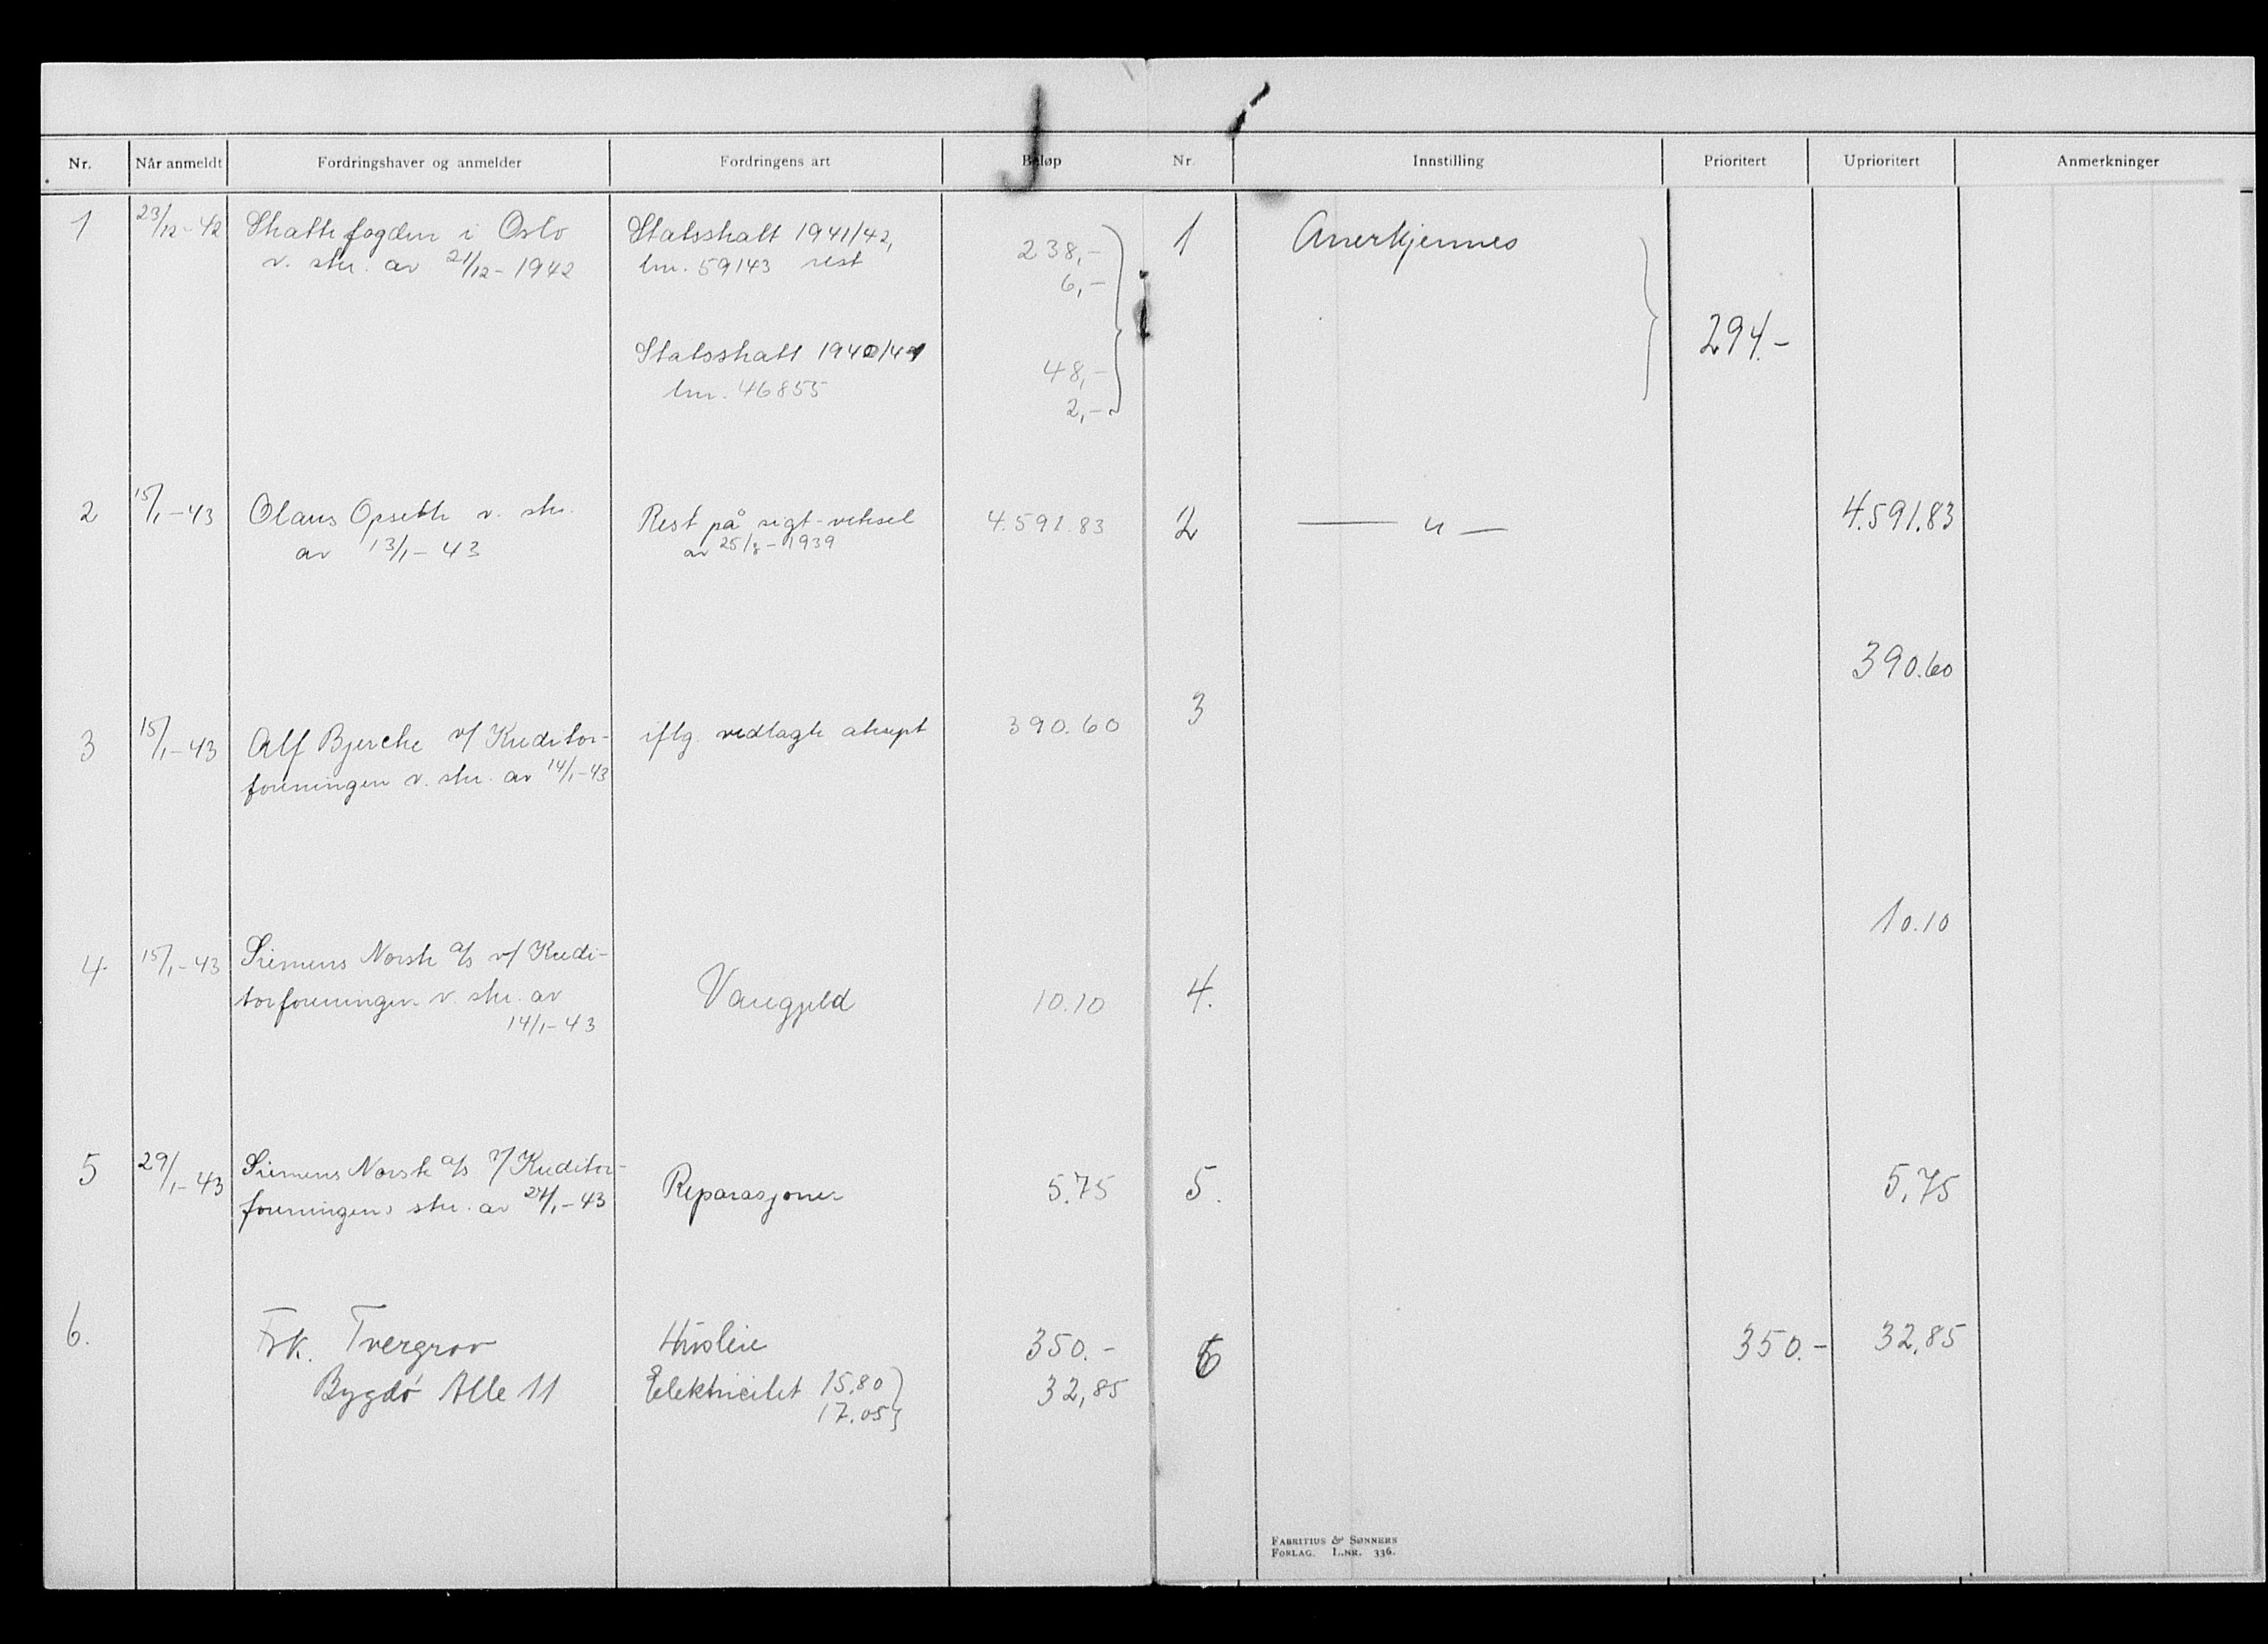 Nr. Når anmeldt Fordringshaver og anmelder Fordringens art Beløp Nr. Innstilling Prioritert Uprioritert Anmerkninger
1 23/12-42 Skattefogden i Oslo Statsskatt 1941/42, 238,- 1 Anerkjennes
v. skr. av 21/12-1942 lnr. 59143 rest 6,-
294.-
Statsskatt 1940/41 48,-
lnr. 46855 2,-
2 15/1-43 Olaus Opseth v. skr. Rest på sigt-veksel 4.591.83 2 — " — 4.591.83
av 13/1-43 av 25/8-1939
390.60
3 15/1-43 Alf Bjercke v/ Kreditor- iflg. vedlagte utskrift 390.60 3
foreningen v. skr. av 14/1-43
10.10
4. 15/1-43 Siemens Norsk a/s v/ Kredi-
torforeningen v. skr. av Varegjeld 10.10 4.
14/1-43
5 29/1-43 Siemens Norsk a/s v/ Kreditor- Reparasjoner 5.75 5. 5.75
foreningens skr. av 27/1-43
6. Frk. Tvergrov Husleie 350.- 6 350.- 32,85
Bygdø Alle 11 Elektricitet 15.80 32,85
17.05
FABRITIUS & SØNNERS
FORLAG. L.NR. 336.